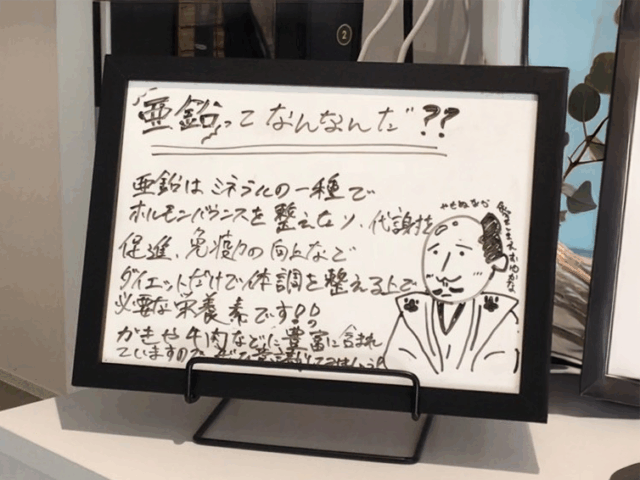 亜鉛ってなんなんだ??
亜鉛はミネラルの一種で
ホルモンバランスを整えたり、代謝を
促進、免疫力の向上などで
ダイエットだけで体調を整える上で
必要な栄養素です!!
かきや牛肉などに豊富に含まれ
ていますので
やせぬなら
2